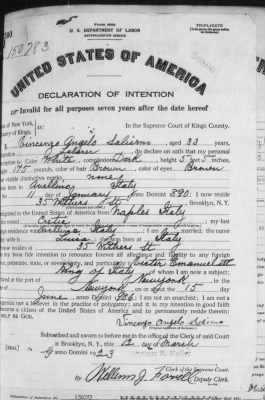 TRIPLICATE
U. S. DEPARTMENT OF LABOR
NATURALIZATION SERVICE
150783
UNITED STATES OF AMERICA
DECLARATION OF INTENTION
Invalid for all purposes seven years after the date hereof
of New York, ss:
In the Supreme Court of Kings County.
of Kings,
Vincenzo Angelo aged 33 years,
Laborer, do declare on oath that my personal
is: Color White, complexion Dark, height 5 feet 5 inches,
175 pounds, color of hair Brown, color of eyes Brown
visible distinctive marks none
born in Avellino Italy
day of January, anno Domini 890; I now reside
35 Withers St Brooklyn, N. Y.
to the United States of America from Naples Italy
; my last
residence was Italy; I am married; the name
wife is Luisa; she was born at Italy
now resides at 35 Withers St
bona fide intention to renounce forever all allegiance and fidelity to any foreign
potentate, state, or sovereignty, and particularly to Victor Emanuel III
King of Italy, of whom I am now a subject;
at the port of New York, in the
New York, on or about the 15 day
June, anno Domini 906; I am not an anarchist; I am not a
polygamist nor a believer in the practice of polygamy; and it is my intention in good faith
become a citizen of the United States of America and to permanently reside therein:
HELP ME GOD.
Vincenzo Angelo
Subscribed and sworn to before me in the office of the Clerk of said Court
at Brooklyn, N. Y., this 12 day of March
anno D. 1923
[SEAL]
Clerk of the Supreme Court.
By William J. Deputy Clerk.
150783